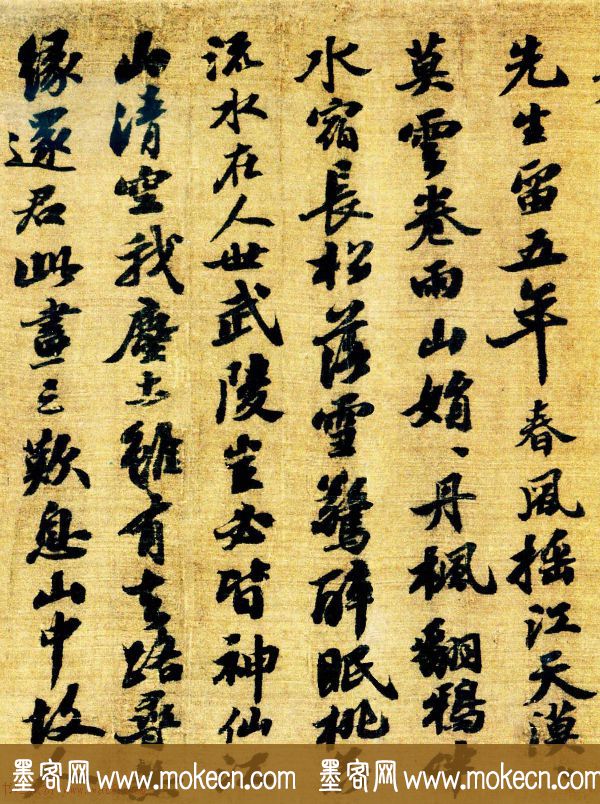 先生留五年春風搖江天漠
莫雲卷雨山娟、丹楓翻鴉
水宿長松落雪驚醉眠桃
流水在人世武陵豈必皆神仙江
山清空我塵土雖有去路尋
緣還君此畫三歎息山中故
墨客网 www.mokecn.com 墨客网 www.mokecn.com